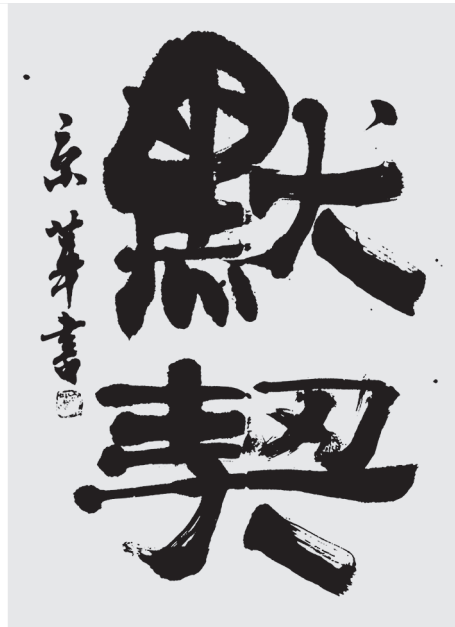 默契
京華書